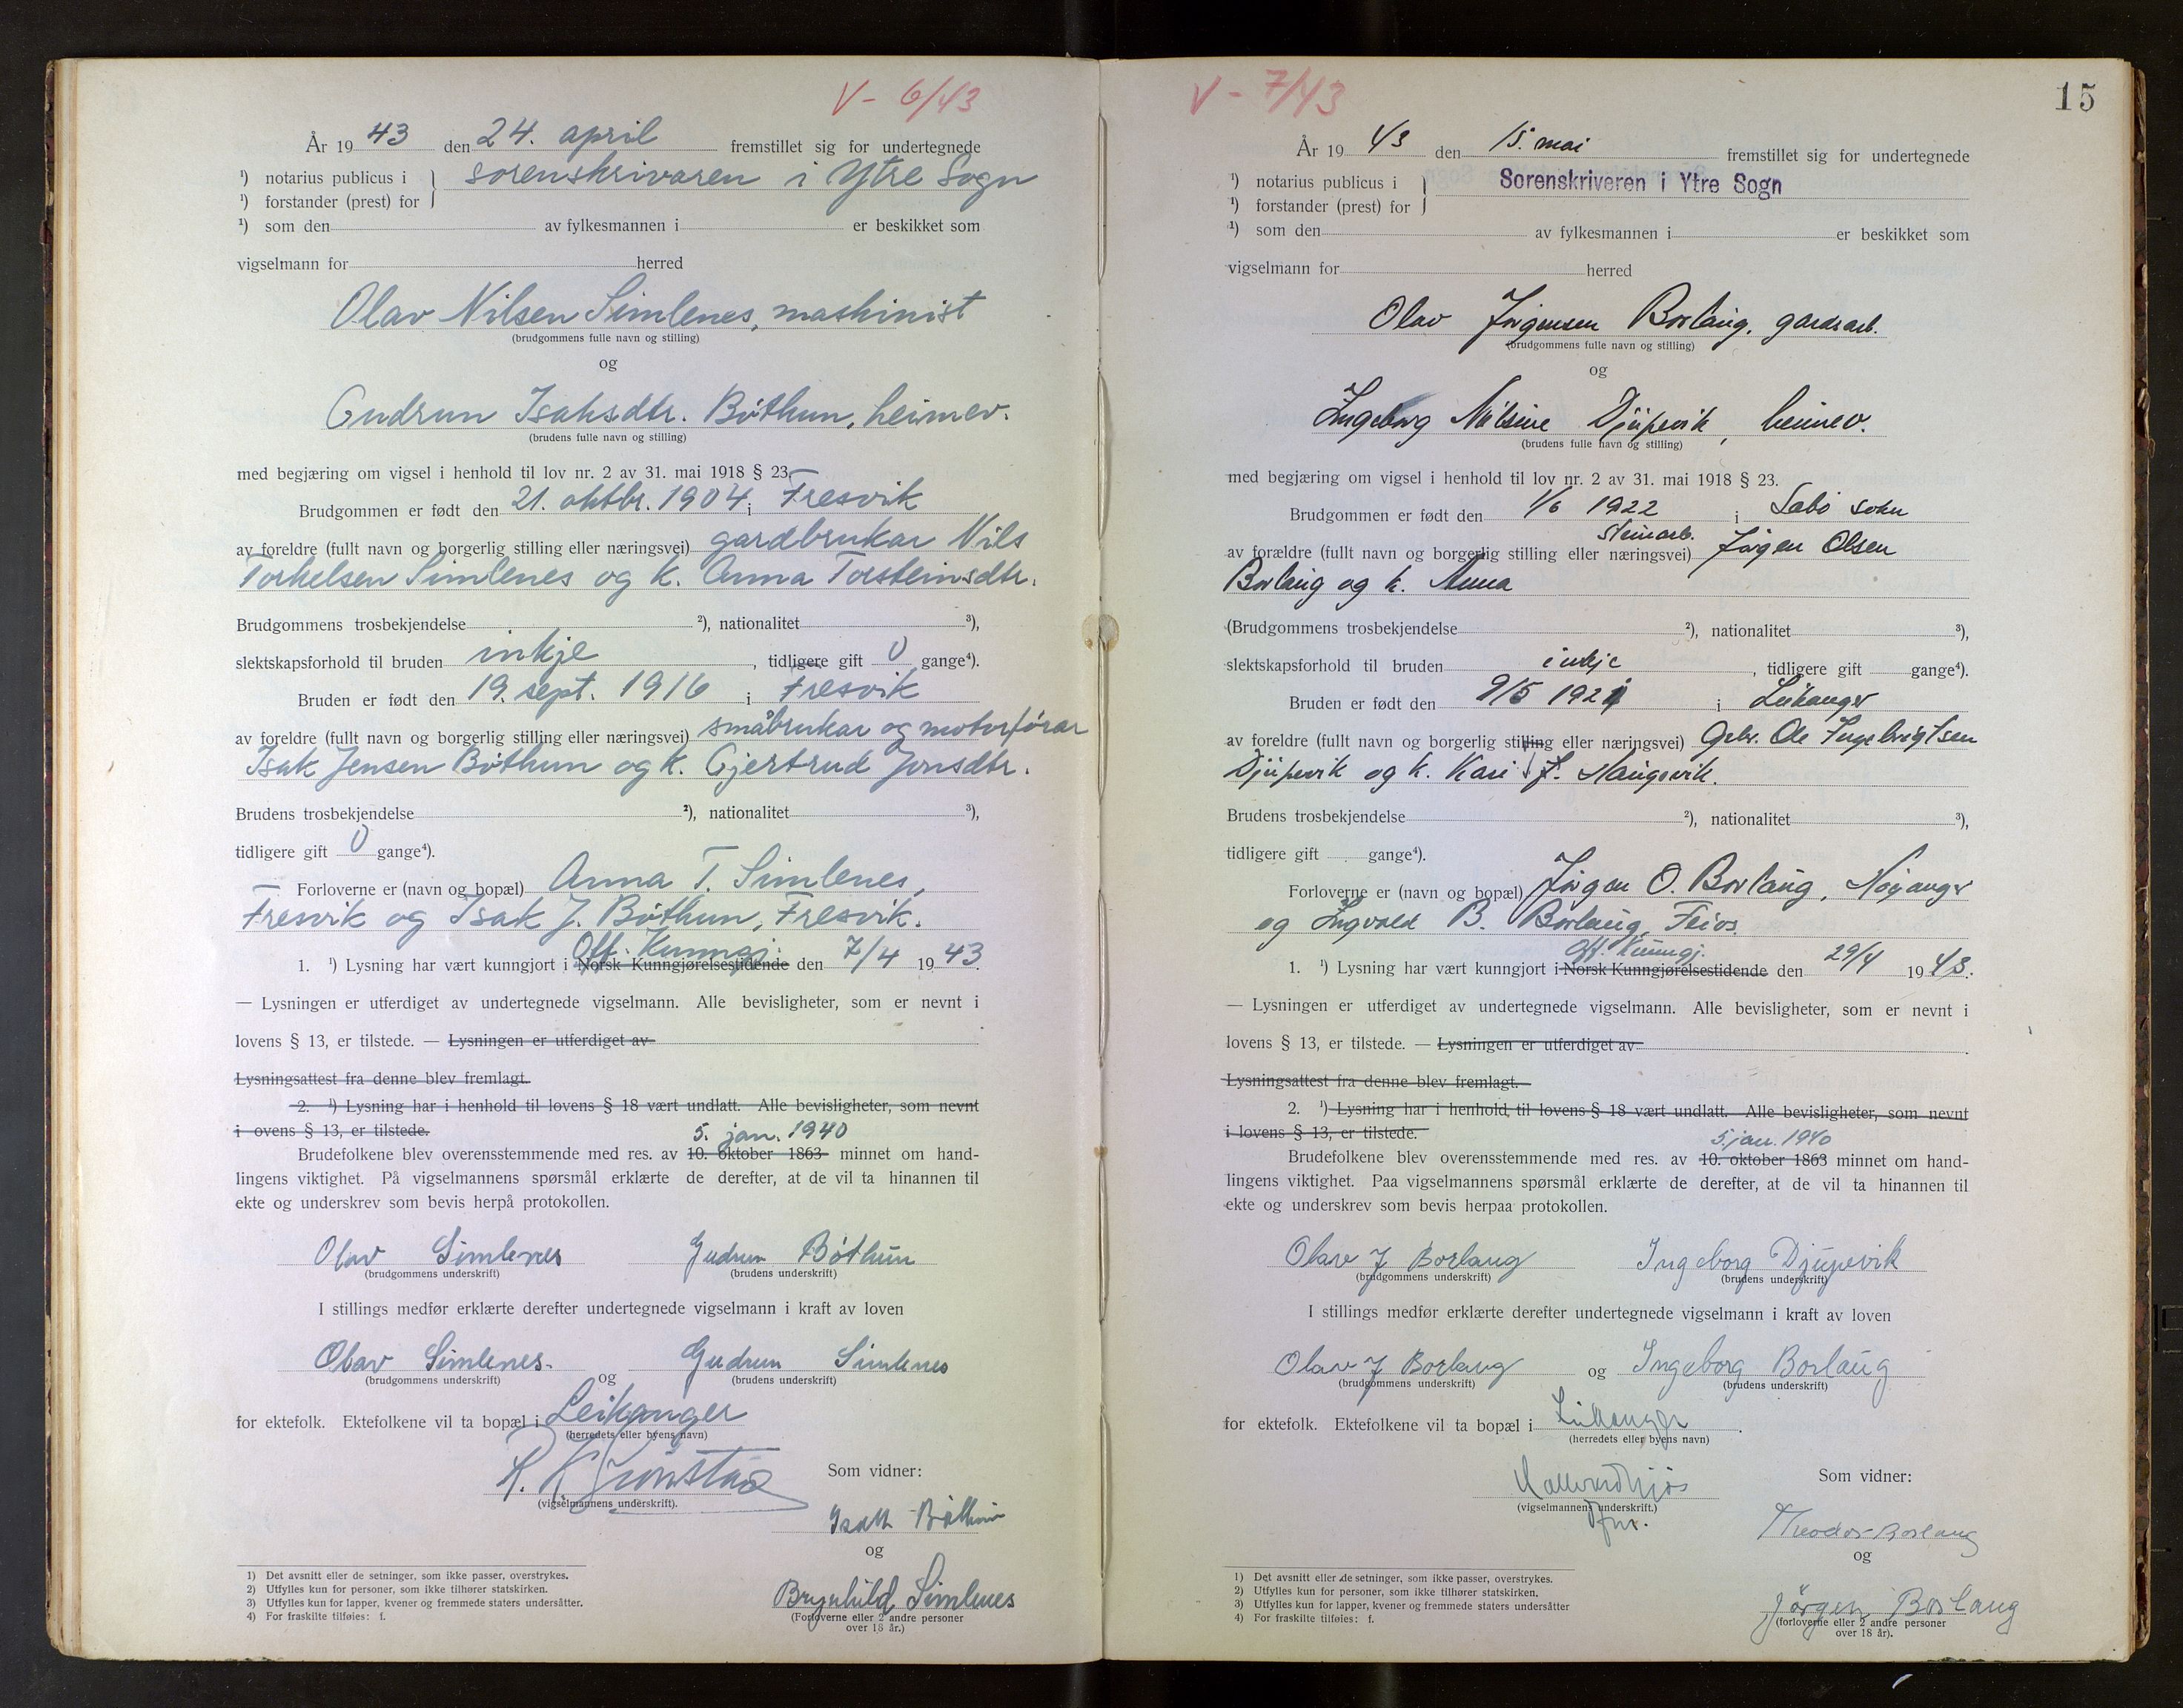 V - 6/43
År 19 43 den 24. april fremstillet sig for undertegnede
¹) notarius publicus i } sorenskrivaren i Ytre Sogn
¹) forstander (prest) for
¹) som den av fylkesmannen i er beskikket som
vigselmann for herred
Olav Nilsen Simlenes, maskinist
(brudgommens fulle navn og stilling)
og
Gudrun Isaksdtr. Bøthun, heimev.
(brudens fulle navn og stilling)
med begjæring om vigsel i henhold til lov nr. 2 av 31. mai 1918 § 23.
Brudgommen er født den 21. oktbr. 1904 i Fresvik
av foreldre (fullt navn og borgerlig stilling eller næringsvei) gardbrukar Nils
Torkelsen Simlenes og k. Anna Torsteinsdtr.
Brudgommens trosbekjendelse ²), nationalitet ³),
slektskapsforhold til bruden inkje, tidligere gift 0 gange⁴).
Bruden er født den 19. sept. 1916 i Fresvik
av foreldre (fullt navn og borgerlig stilling eller næringsvei) småbrukar og motorførar
Isak Jensen Bøthun og k. Gjertrud Jonsdtr.
Brudens trosbekjendelse ²), nationalitet ³),
tidligere gift 0 gange⁴).
Forloverne er (navn og bopæl) Anna T. Simlenes,
Fresvik og Isak J. Bøthun, Fresvik.
Off. Kunngj.
1. ¹) Lysning har vært kunngjort i Norsk Kunngjørelsestidende den 7/4 19 43.
— Lysningen er utferdiget av undertegnede vigselmann. Alle bevisligheter, som er nevnt i
lovens § 13, er tilstede. — Lysningen er utferdiget av
Lysningsattest fra denne blev fremlagt.
2. ¹) Lysning har i henhold til lovens § 18 vært undlatt. Alle bevisligheter, som nevnt
i ovens § 13, er tilstede.
5. jan. 1940
Brudefolkene blev overensstemmende med res. av 10. oktober 1863 minnet om hand-
lingens viktighet. På vigselmannens spørsmål erklærte de derefter, at de vil ta hinannen til
ekte og underskrev som bevis herpå protokollen.
Olav Simlenes Gudrun Bøthun
(brudgommens underskrift) (brudens underskrift)
I stillings medfør erklærte derefter undertegnede vigselmann i kraft av loven
Olav Simlenes. og Gudrun Simlenes
(brudgommens underskrift) (brudens underskrift)
for ektefolk. Ektefolkene vil ta bopæl i Leikanger
(herredets eller byens navn)
Som vidner:
(vigselmannens underskrift).
Isak Bøthun
og
Brynhild Simlenes
(Forloverne eller 2 andre personer
over 18 år.)
1) Det avsnitt eller de setninger, som ikke passer, overstrykes.
2) Utfylles kun for personer, som ikke tilhører statskirken.
3) Utfylles kun for lapper, kvener og fremmede staters undersåtter.
4) For fraskilte tilføies: f.
V - 7/43
15
År 19 43 den 15. mai fremstillet sig for undertegnede
¹) notarius publicus i } Sorenskriveren i Ytre Sogn
¹) forstander (prest) for
¹) som den av fylkesmannen i er beskikket som
vigselmann for herred
Olav Jørgensen Borlaug, gardsarb.
(brudgommens fulle navn og stilling)
og
Ingeborg Nilsine Djupevik, heimev.
(brudens fulle navn og stilling)
med begjæring om vigsel i henhold til lov nr. 2 av 31. mai 1918 § 23.
Brudgommen er født den 1/6 1922 i Sæbø sokn
Steinarb.
av forældre (fullt navn og borgerlig stilling eller næringsvei) Jørgen Olsen
Borlaug og k. Anna
(Brudgommens trosbekjendelse ²), nationalitet ³),
slektskapsforhold til bruden inkje, tidligere gift gange⁴).
Bruden er født den 9/5 1921 i Leikanger
av foreldre (fullt navn og borgerlig stilling eller næringsvei) Gbr. Ole Ingebrigtsen
Djupevik og k. Kari f. Haugsvik.
Brudens trosbekjendelse ²), nationalitet ³),
tidligere gift gange⁴).
Forloverne er (navn og bopæl) Jørgen O. Borlaug, Høyanger
og Ingvald B. Borlaug, Feios.
Off. Kunngj.
1. ¹) Lysning har vært kunngjort i Norsk Kunngjørelsestidende den 29/4 19 43.
— Lysningen er utferdiget av undertegnede vigselmann. Alle bevisligheter, som er nevnt i
lovens § 13, er tilstede. — Lysningen er utferdiget av
Lysningsattest fra denne blev fremlagt.
2. ¹) Lysning har i henhold til lovens § 18 vært undlatt. Alle bevisligheter, som nevnt
i lovens § 13, er tilstede.
5. jan. 1940
Brudefolkene blev overensstemmende med res. av 10. oktober 1863 minnet om hand-
lingens viktighet. Paa vigselmannens spørsmål erklærte de derefter, at de vil ta hinannen til
ekte og underskrev som bevis herpaa protokollen.
Olav J Borlaug Ingeborg Djupevik
(brudgommens underskrift) (brudens underskrift)
I stillings medfør erklærte derefter undertegnede vigselmann i kraft av loven
Olav J Borlaug og Ingeborg Borlaug
(brudgommens underskrift) (brudens underskrift)
for ektefolk. Ektefolkene vil ta bopæl i Leikanger.
(herredets eller byens navn)
Som vidner:
(vigselmannens underskrift.)
Theodor Borlaug
og
Jørgen Borlaug
(forloverne eller 2 andre personer
over 18 år).
1) Det avsnitt eller de setninger, som ikke passer, overstrykes.
2) Utfylles kun for personer, som ikke tilhører statskirken.
3) Utfylles kun for lapper, kvener og fremmede staters undersåtter
4) For fraskilte tilføies: f.